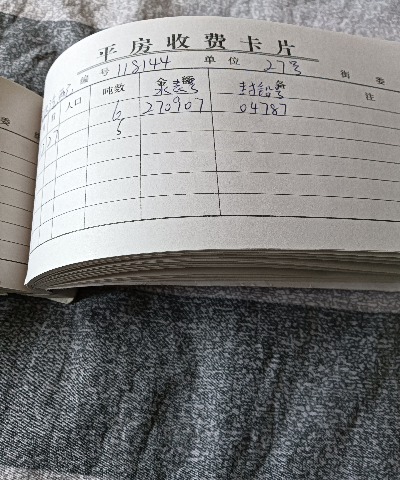 平房收费卡片
编号 118144 单位 27号 街 委
人口 吨数 泉表号 封铅号 注
6 270907 04787
5
委